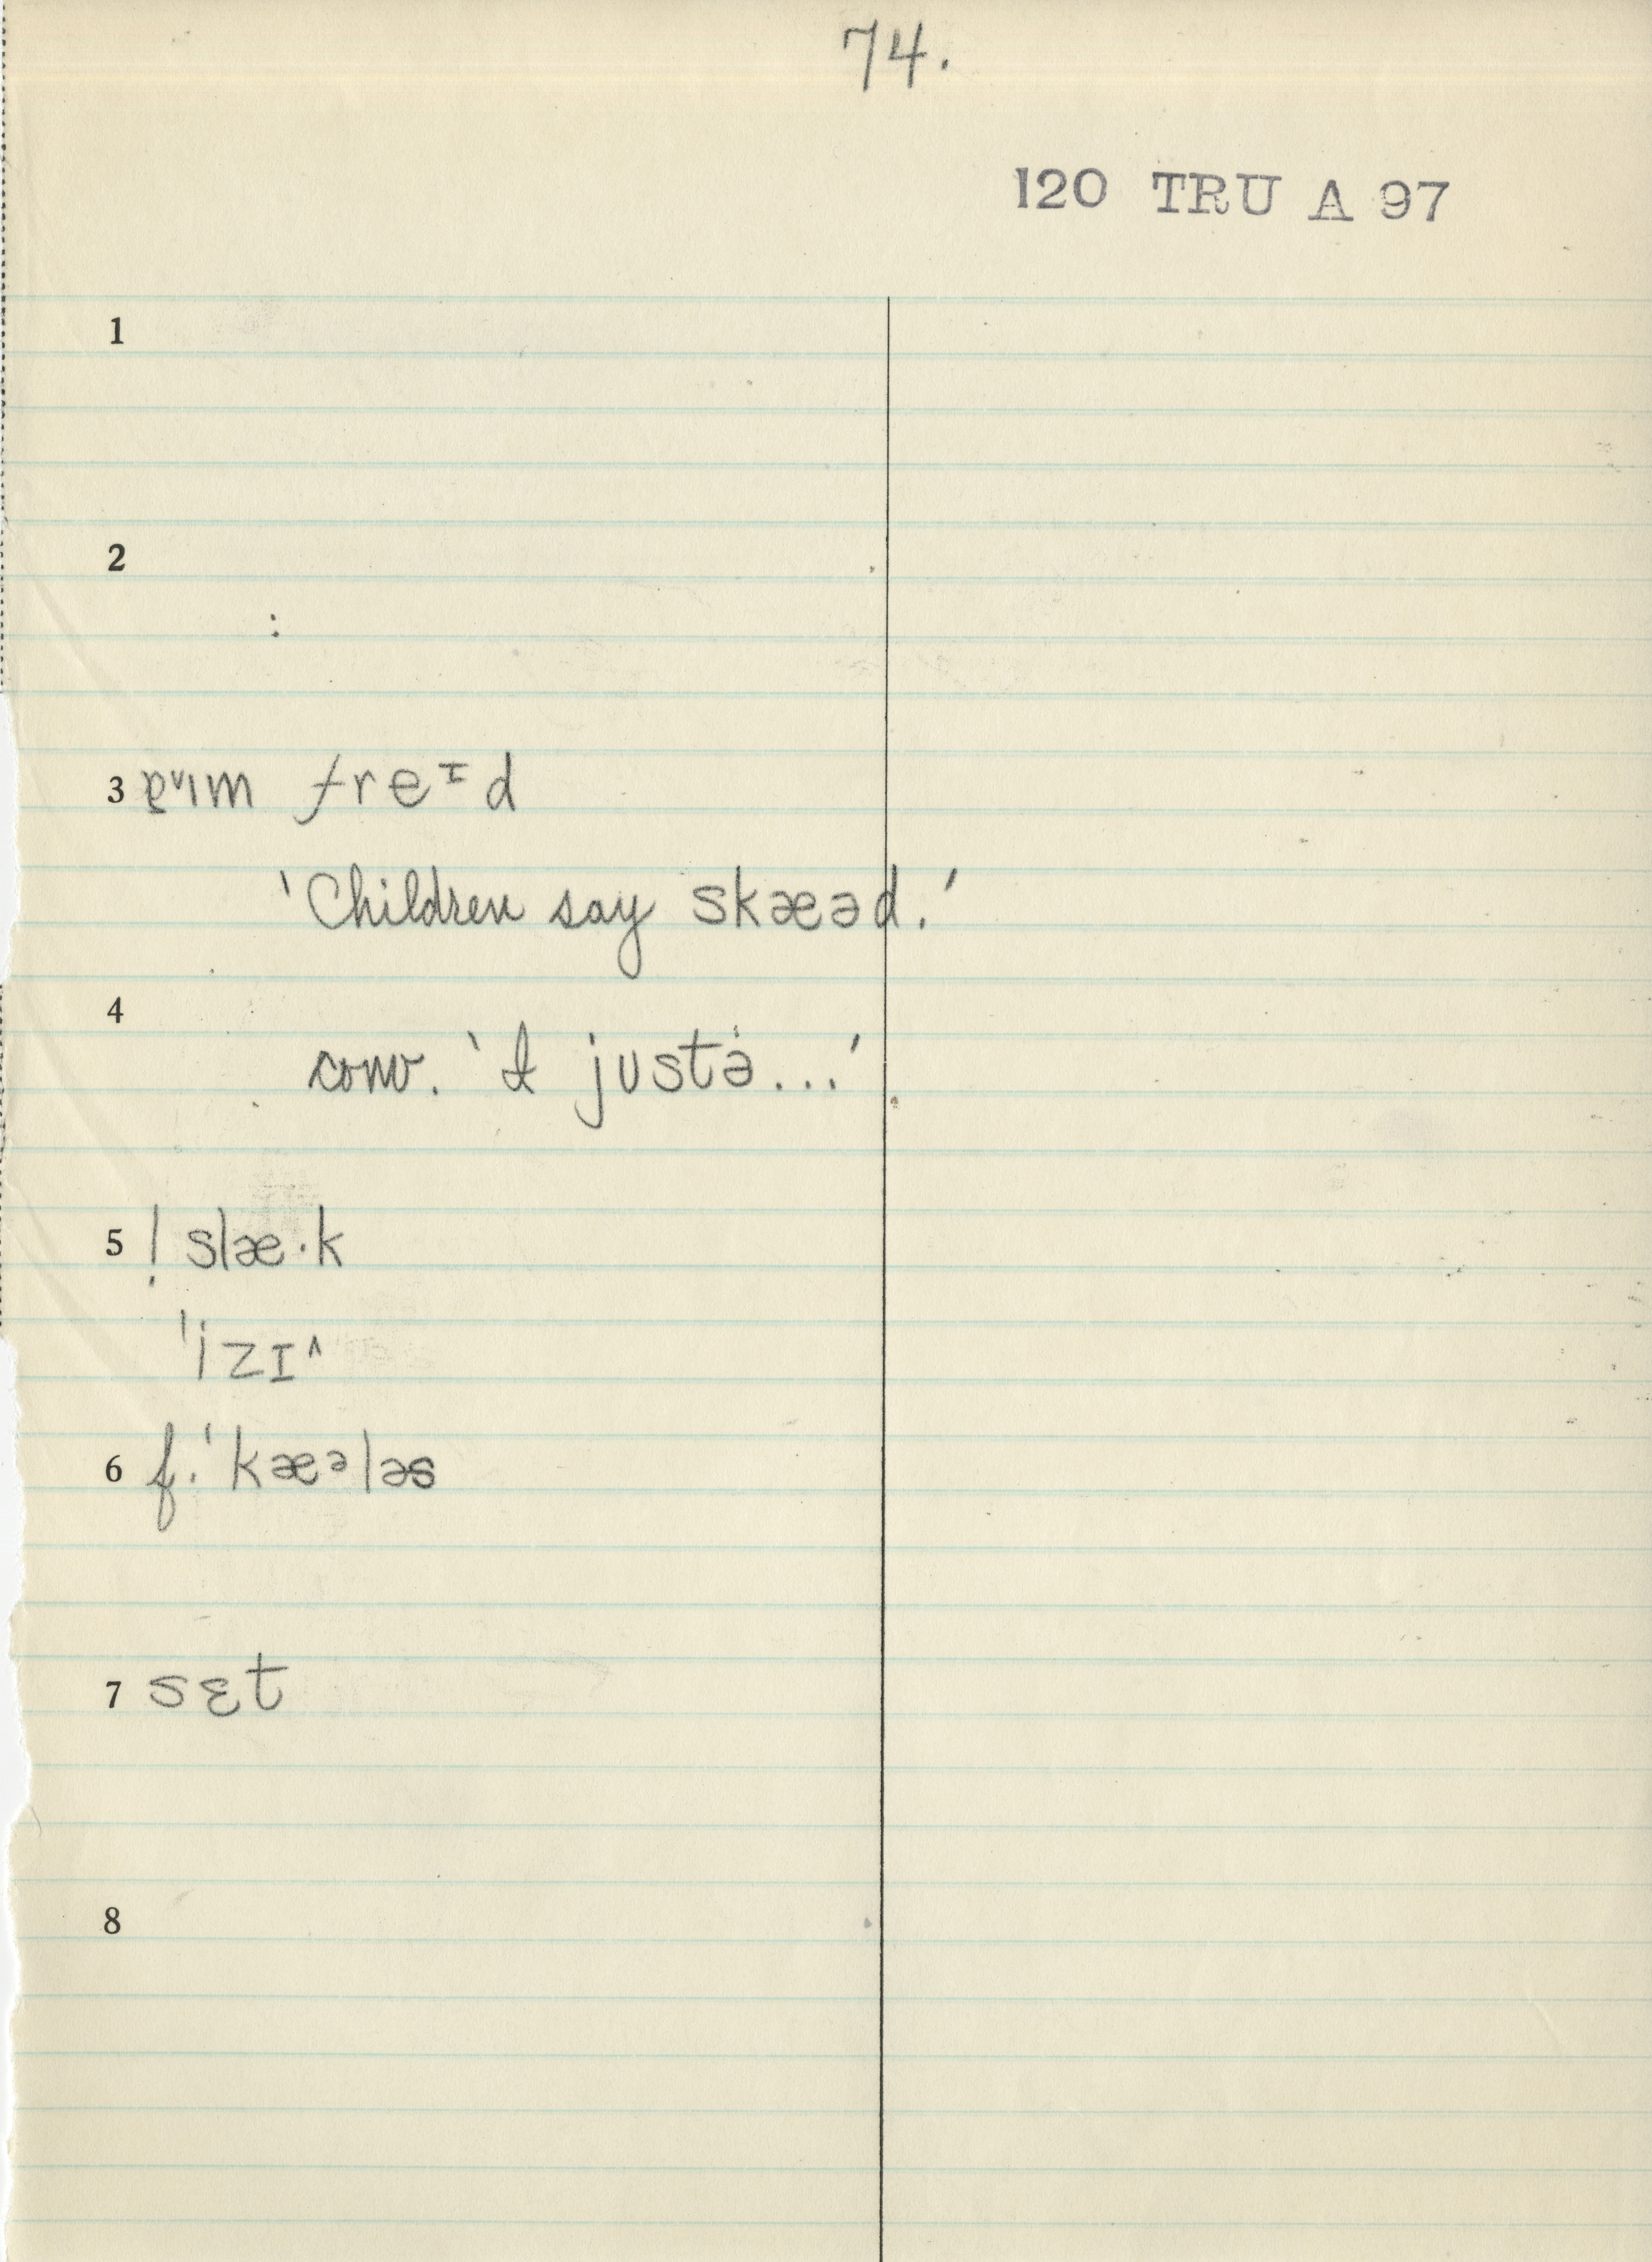 74.
120 TRU A 97
1
2
:
3 aᶦm freᶦd
'Children say skæəd.'
4
conv. 'I justə...'
5 ! slæ·k
'izɪ^
6 f. 'kæᵊləs
7 sɛt
8